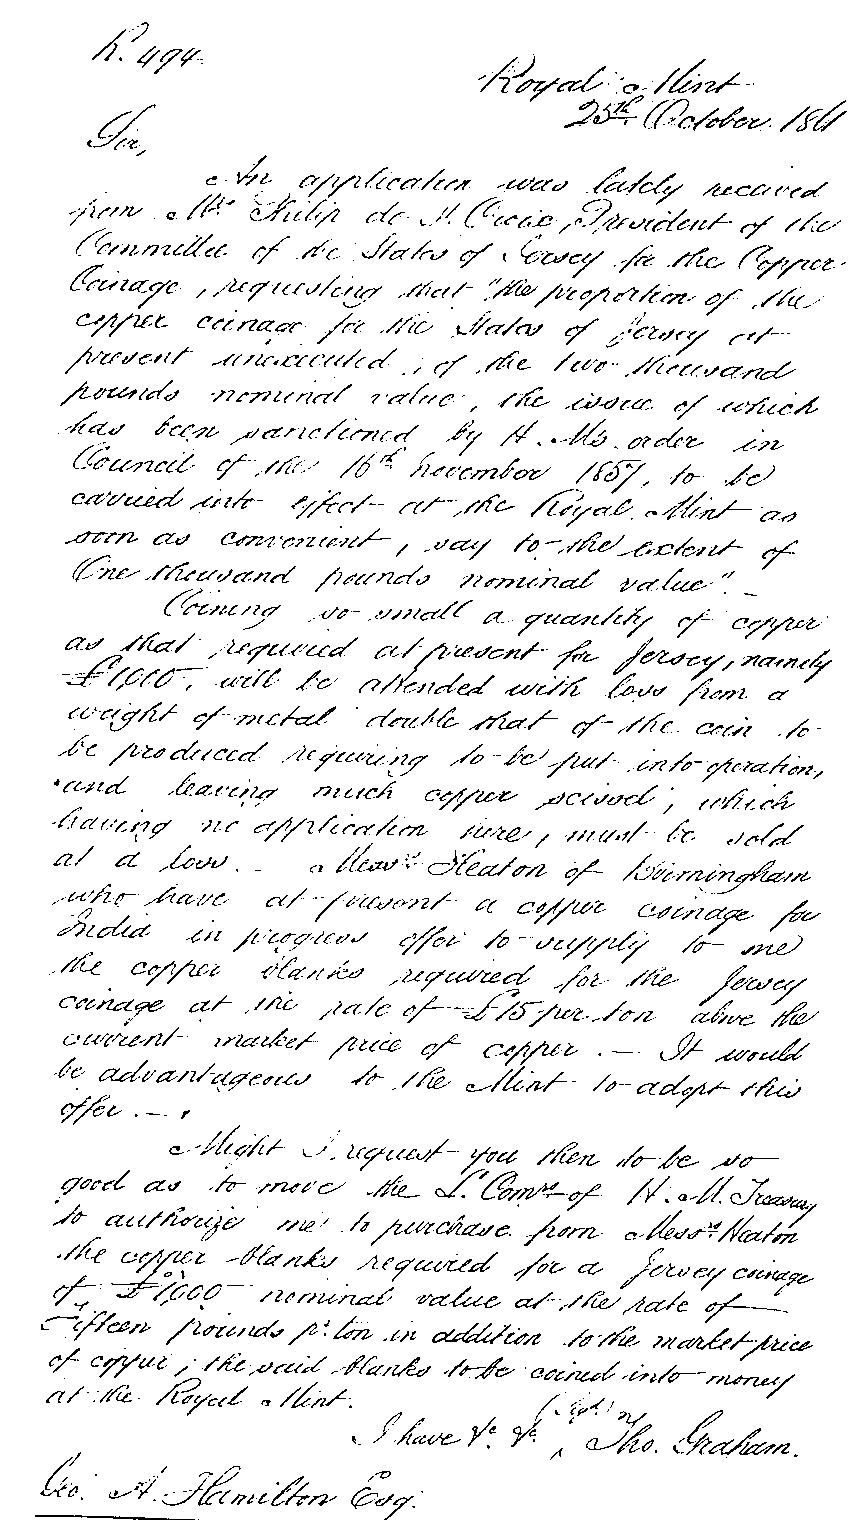 R. 494.
Royal Mint
25th October. 1861
Sir,
An application was lately received
from Mr. Philip de St. Croix, President of the
Committee of the States of Jersey for the Copper
Coinage, requesting that "the proportion of the
copper coinage for the States of Jersey at
present unexecuted, of the two thousand
pounds nominal value, the issue of which
has been sanctioned by H. Ms. order in
Council of the 16th November 1857, to be
carried into effect at the Royal Mint as
soon as convenient, say to the extent of
One thousand pounds nominal value". _
Coining so small a quantity of copper
as that required at present for Jersey, namely
£1,000, will be attended with loss from a
weight of metal double that of the coin to
be produced requiring to be put into operation,
and leaving much copper scissel, which
having no application here, must be sold
at a loss. _ Messrs. Heaton of Birmingham
who have at present a copper coinage for
India in progress offer to supply to me
the copper blanks required for the Jersey
coinage at the rate of £15 per ton above the
current market price of copper. — It would
be advantageous to the Mint to adopt this
offer. —
Might I request you then to be so
good as to move the L. Comrs. of H. M. Treasury
to authorize me to purchase from Messrs. Heaton
the copper blanks required for a Jersey coinage
of £1,000 nominal value at the rate of
Fifteen pounds pr. ton in addition to the market price
of copper; the said blanks to be coined into money
at the Royal Mint.
I have &c. &c. (Sigd.) Tho. Graham.
Geo. A. Hamilton Esq.